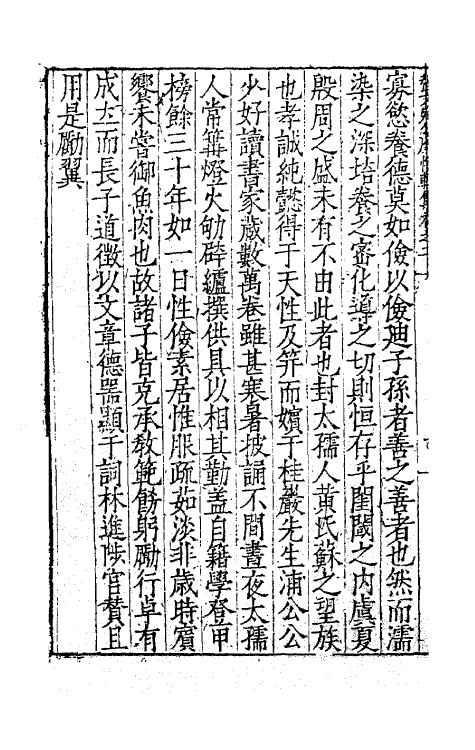 寡慾養德莫如儉以儉迪子孫者善之善者也然而濡
染之深培養之密化導之切則恒存乎閨閫之内虞夏
殷周之盛未有不由此者也封太孺人黄氏蘇之望族
也孝誠純懿得于天性及笄而嬪于桂巖先生浦公公
少好讀書家蔵數萬卷雖甚寒暑披誦不間晝夜太孺
人常篝燈火劬辟纑撰供具以相其勤盖自籍學登甲
榜餘三十年如一日性儉素居惟服疏茹淡非歳時賓
饗未嘗御魚肉也故諸子皆克承敎範飭躬勵行卓有
成立而長子道徴以文章德噐顯于詞林進陟官賛且
用是勵翼